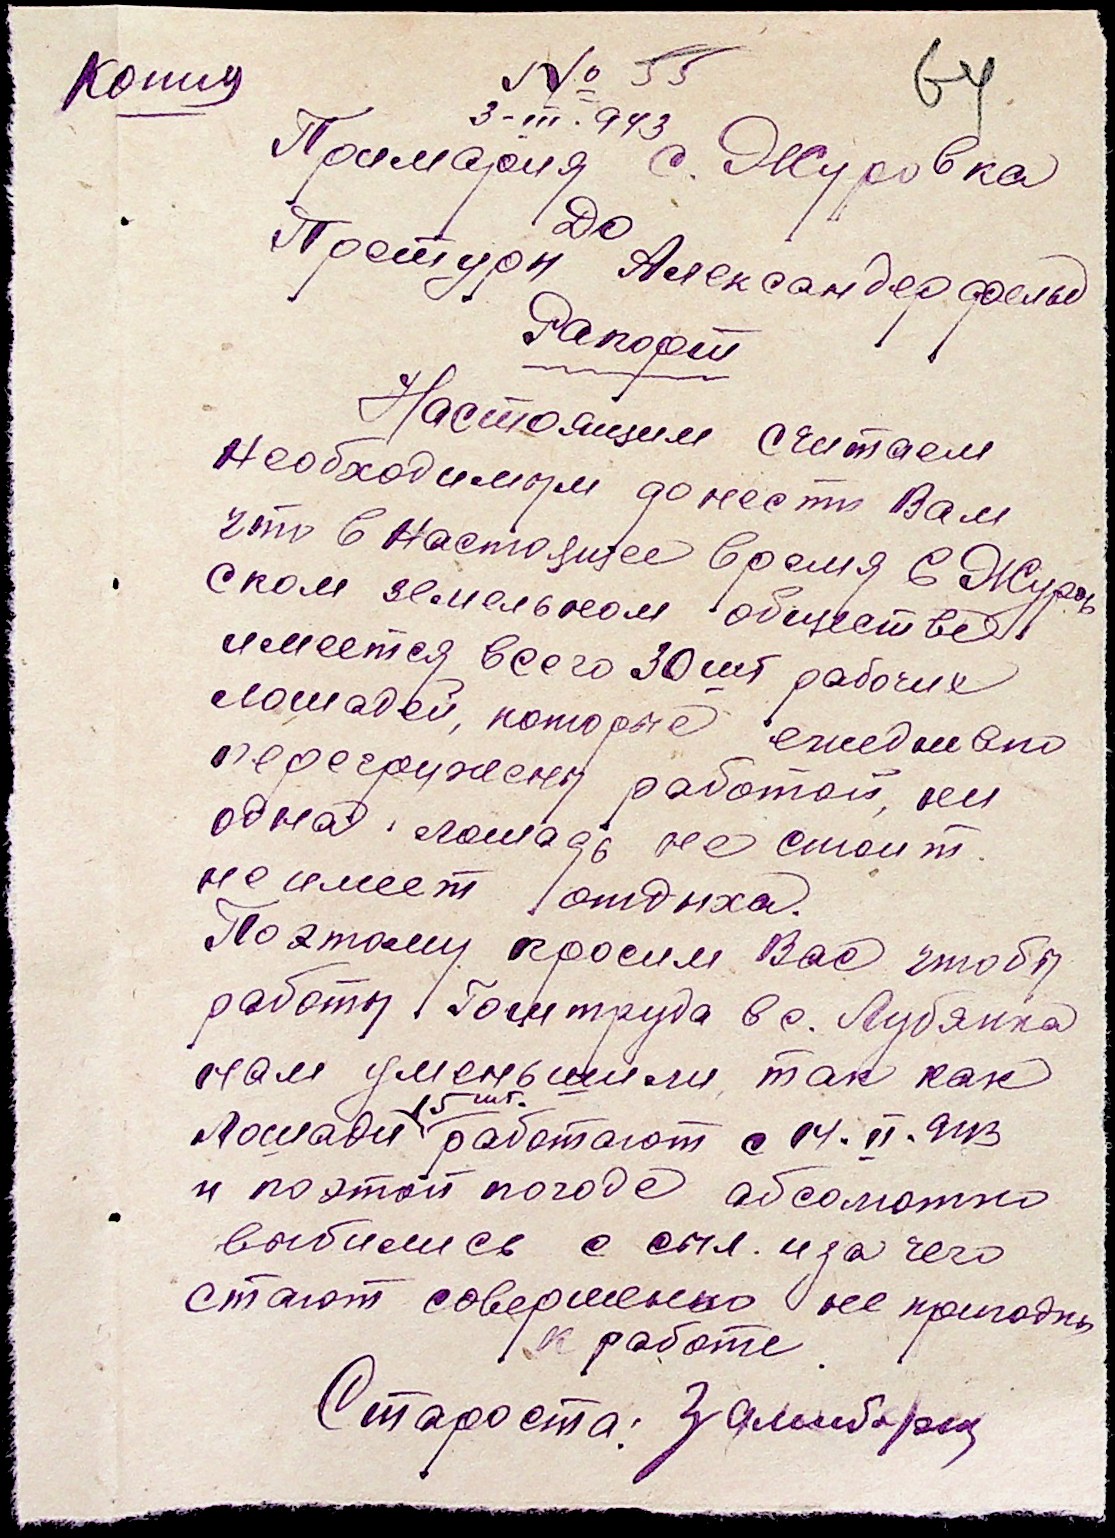 Копия
№ 55
64
3-III.943
Примария с. Журовка
До
Претури Александерфельд
Рапорт
Настоящим считаем
необходимым донести Вам
что в настоящее время в Журов
ском земельном обществе
имеется всего 30 шт рабочие
лошадей, которые ежедневно
перегружены работой, ни
одна лошадь не стоит
не имеет отдыха.
Поэтому просим Вас чтобы
работы в с. Лубянка
нам уменьшили, так как
5 шт.
лошади работают с 14.II.943
и по этой погоде абсолютно
выбились с сыл. иза чего
стают совершенно не пригодны
к работе.
Староста: